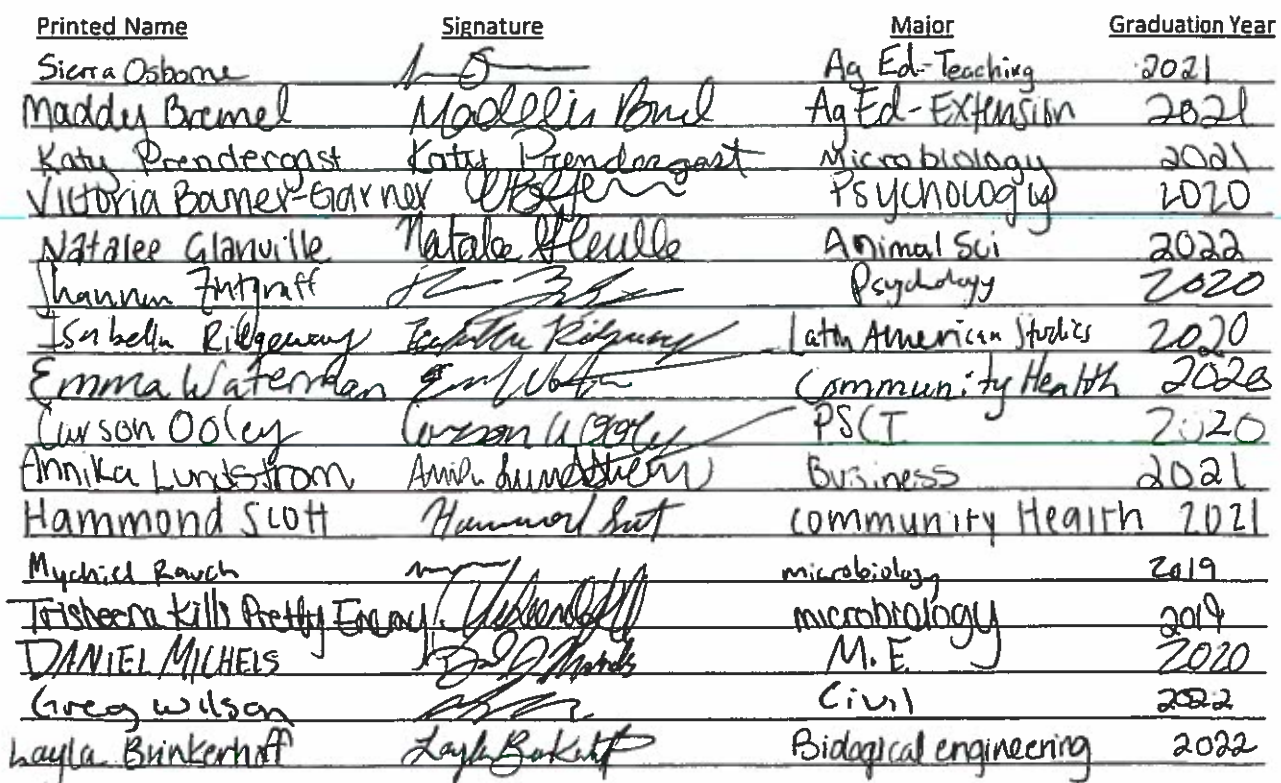 Printed Name Signature Major Graduation Year
Sierra Osborne Ag Ed-Teaching 2021
Maddy Bremel Ag Ed-Extension 2021
Katy Prendergast Katy Prendergast Microbiology 2021
Victoria Bomer-Garner Psychology 2020
Natalee Glanville Natalee Animal Sci 2022
Shannon Psychology 2020
Isabella Ridgeway Isabella Ridgeway Latin American Studies 2020
Emma Waterman Community Health 2020
Carson Ooley Carson Ooley PSCI 2020
Annika Lundstrom Annika Lundstrom Business 2021
Hammond Scott Hammond Scott Community Health 2021
Mychiel Rauch microbiology 2019
Trisheena Kills Pretty Enemy microbiology 2019
DANIEL MICHELS M.E. 2020
Greg Wilson Civil 2022
Layla Brinkerhoff Biological engineering 2022